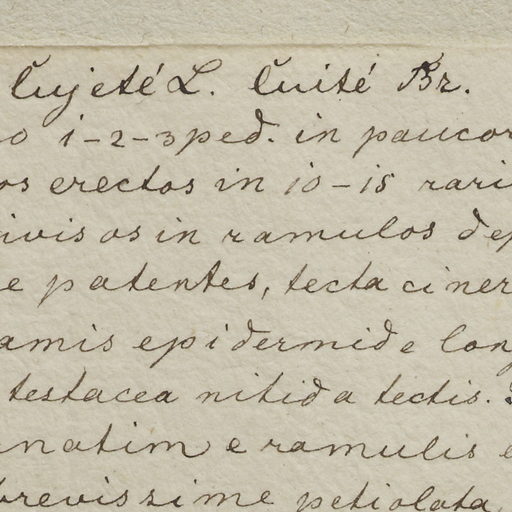 Cujeté L. Cuité Br.
o 1-2-3 ped. in paucor
os erectos in 10-15 rari
ivisos in ramulos dep
e patentes, tecta ciner
amis epidermide long
testacea nitida tectis.
natim e ramulis e
brevissime petiolata,